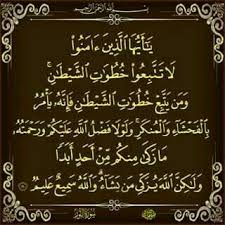 يَٰٓأَيُّهَا ٱلَّذِينَ ءَامَنُوا۟
لَا تَتَّبِعُوا۟ خُطُوَٰتِ ٱلشَّيْطَٰنِ ۚ
وَمَن يَتَّبِعْ خُطُوَٰتِ ٱلشَّيْطَٰنِ فَإِنَّهُۥ يَأْمُرُ
بِٱلْفَحْشَآءِ وَٱلْمُنكَرِ ۚ وَلَوْلَا فَضْلُ ٱللَّهِ عَلَيْكُمْ وَرَحْمَتُهُۥ
مَا زَكَىٰ مِنكُم مِّنْ أَحَدٍ أَبَدًا
وَلَٰكِنَّ ٱللَّهَ يُزَكِّى مَن يَشَآءُ ۗ وَٱللَّهُ سَمِيعٌ عَلِيمٌ
سُورَةُ النُّور